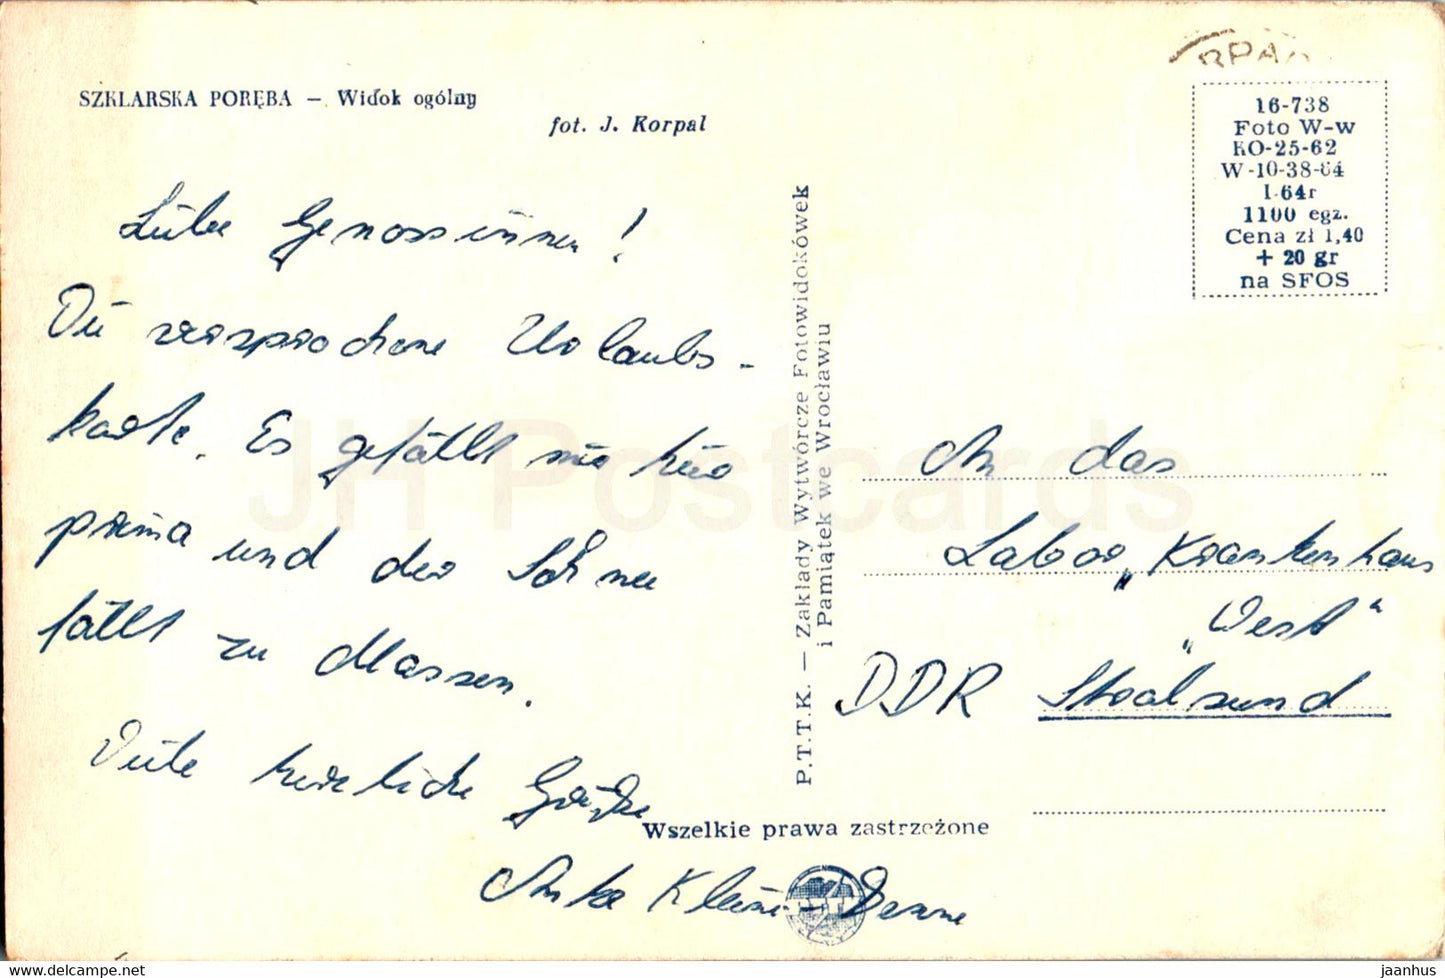 SZKLARSKA PORĘBA — Widok ogólny
fot. J. Korpal
Liebe Genossinnen!
Die versprochene Urlaubs-
karte. Es gefällt mir hier
prima und der Schnee
fällt zu Massen.
Viele herzliche Grüße
Anke Klein-
P.T.T.K. — Zakłady Wytwórcze Fotowidokówek
i Pamiątek we Wrocławiu
Wszelkie prawa zastrzeżone
RPA
16-738
Foto W-w
KO-25-62
W-10-38-64
I-64r
1100 egz.
Cena zł 1,40
+ 20 gr
na SFOS
An das
Labor „Krankenhaus
„West“
DDR Stralsund
JH Postcards
jaanhus